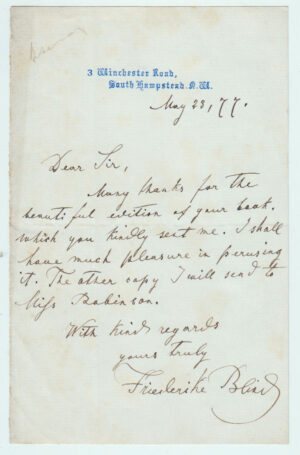 3 Winchester Road,
South Hampstead. N.W.
May 23, 77.
Dear Sir,
Many thanks for the
beautiful edition of your book.
which you kindly sent me. I shall
have much pleasure in perusing
it. The other copy I will send to
Miss Robinson.
With kind regards
yours truly
Friederike Blind